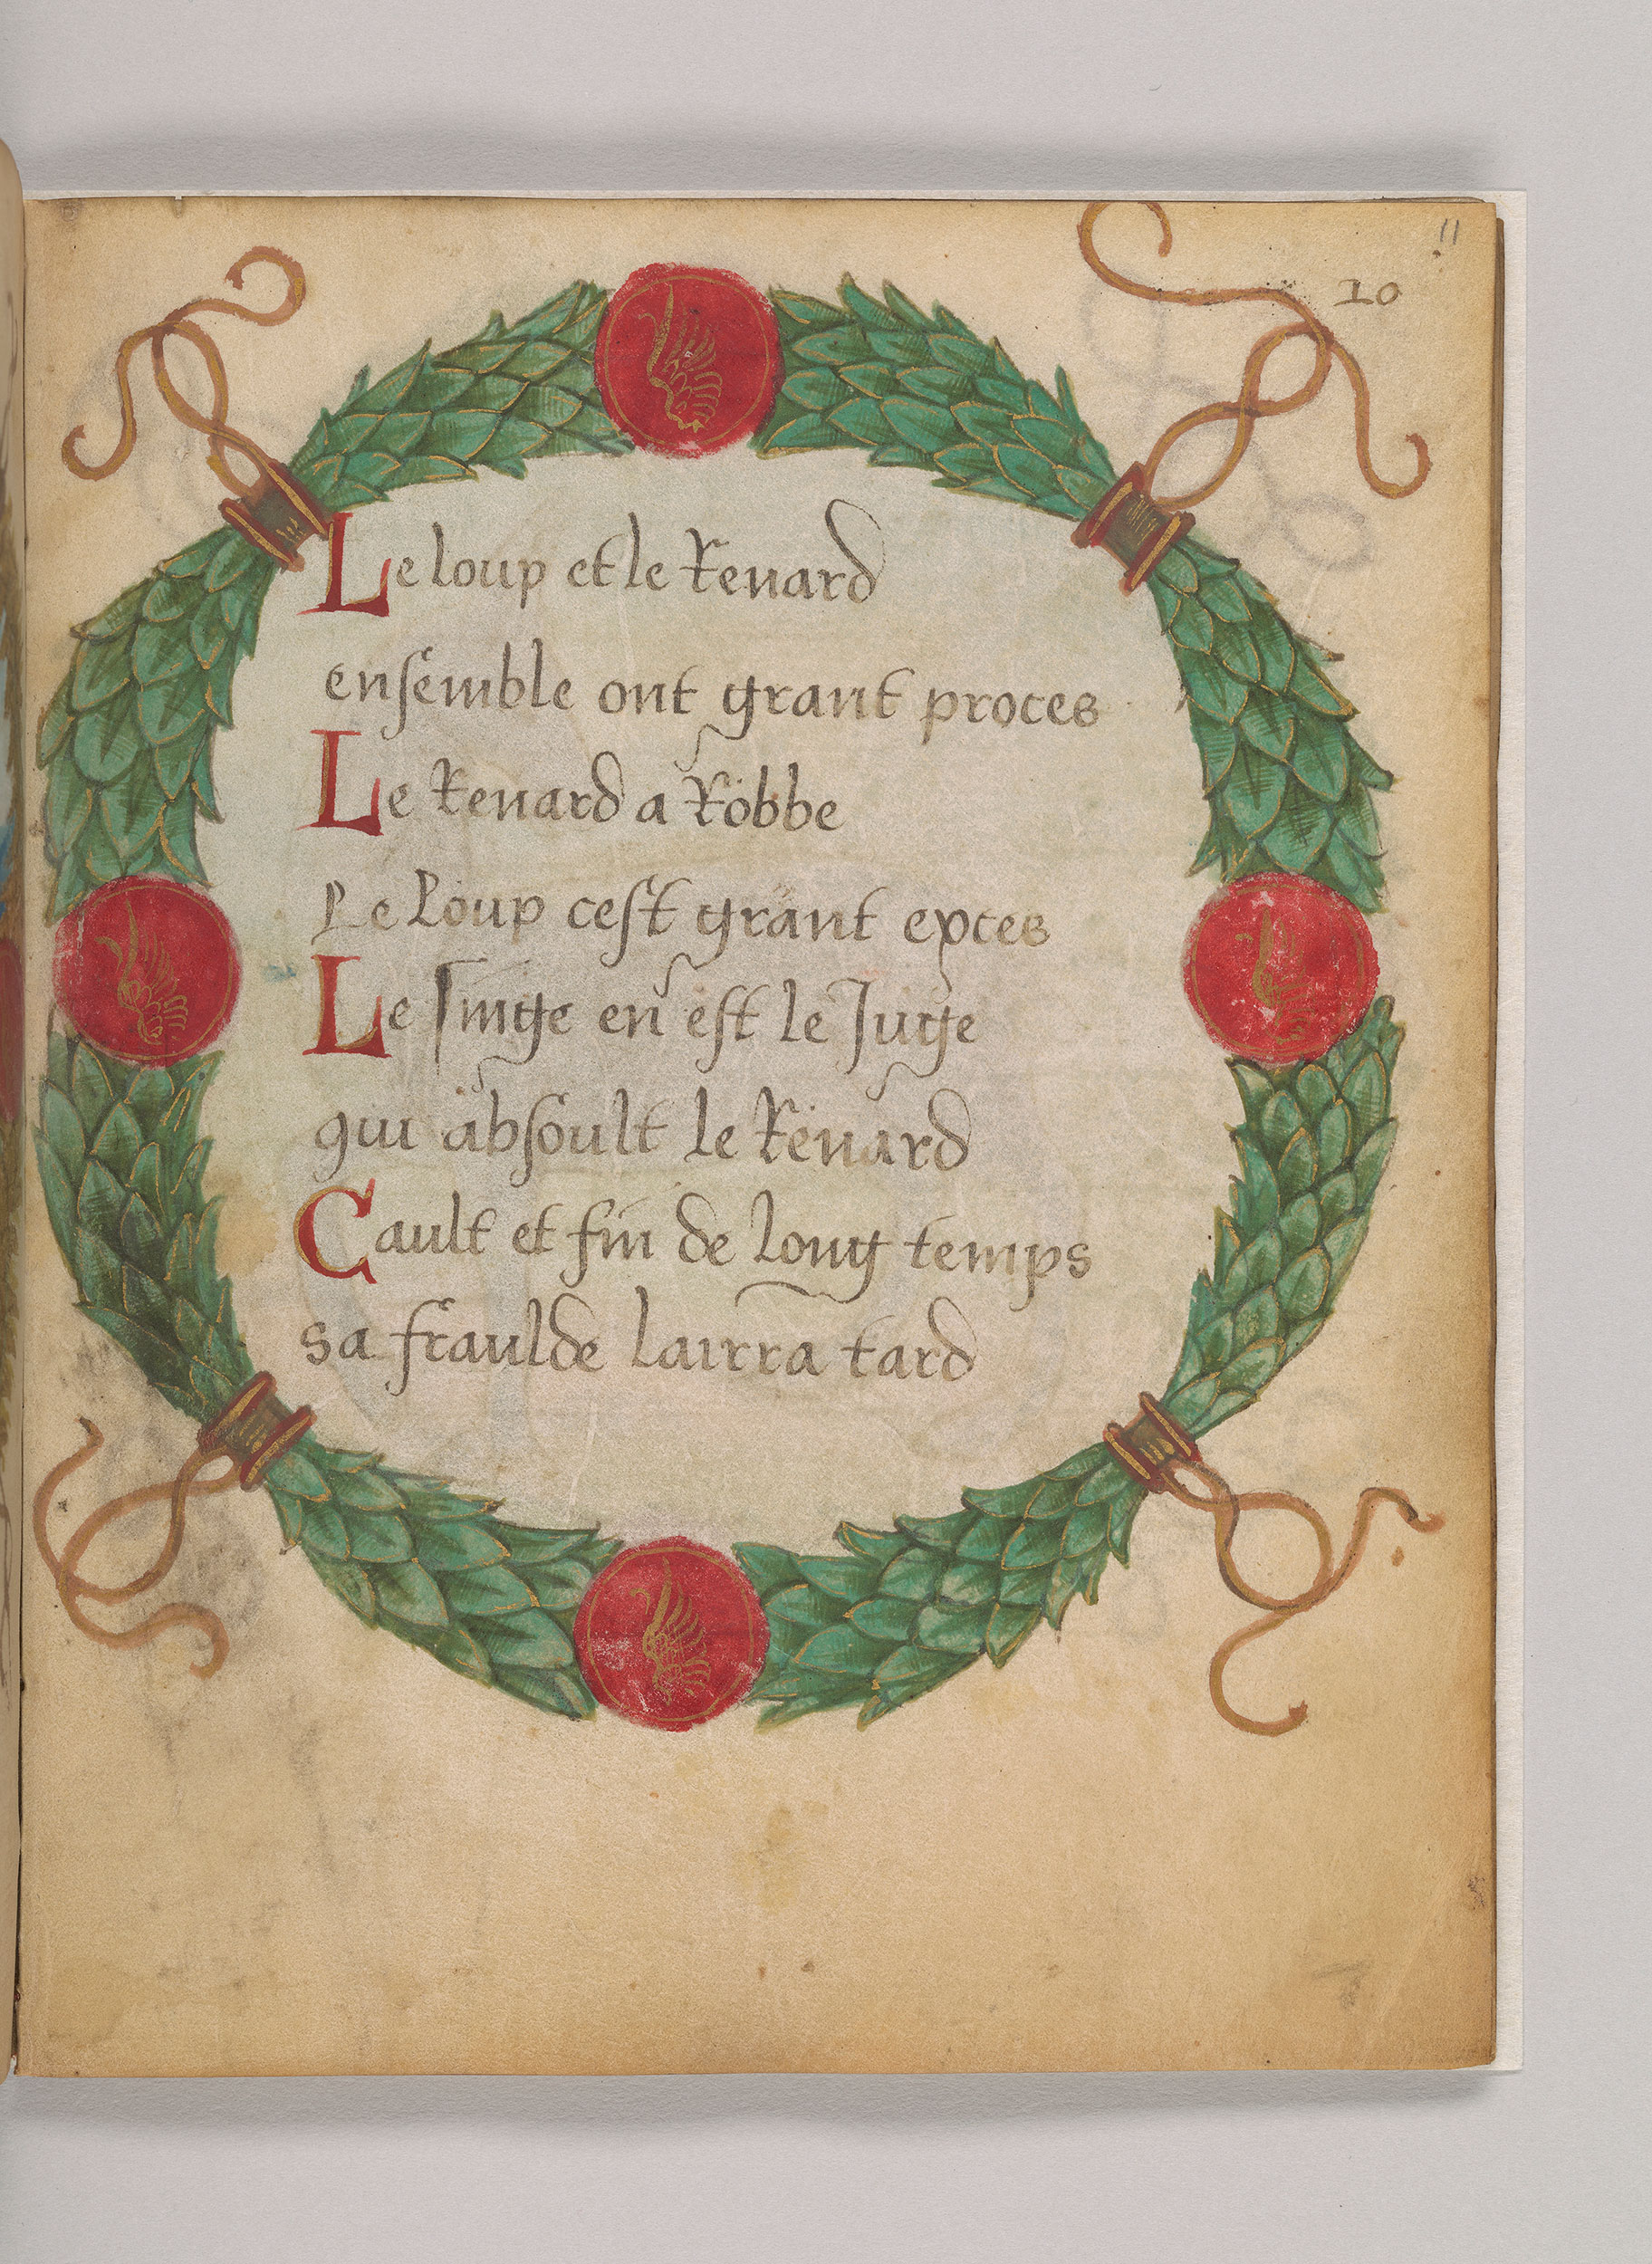 11
10
Le loup et le Renard
ensemble ont grant proces
Le Renard a Robbe
Le Loup cest grant exces
Le singe en est le Juge
qui absoult le Renard
Cault et fin de long temps
sa fraulde lairra tard